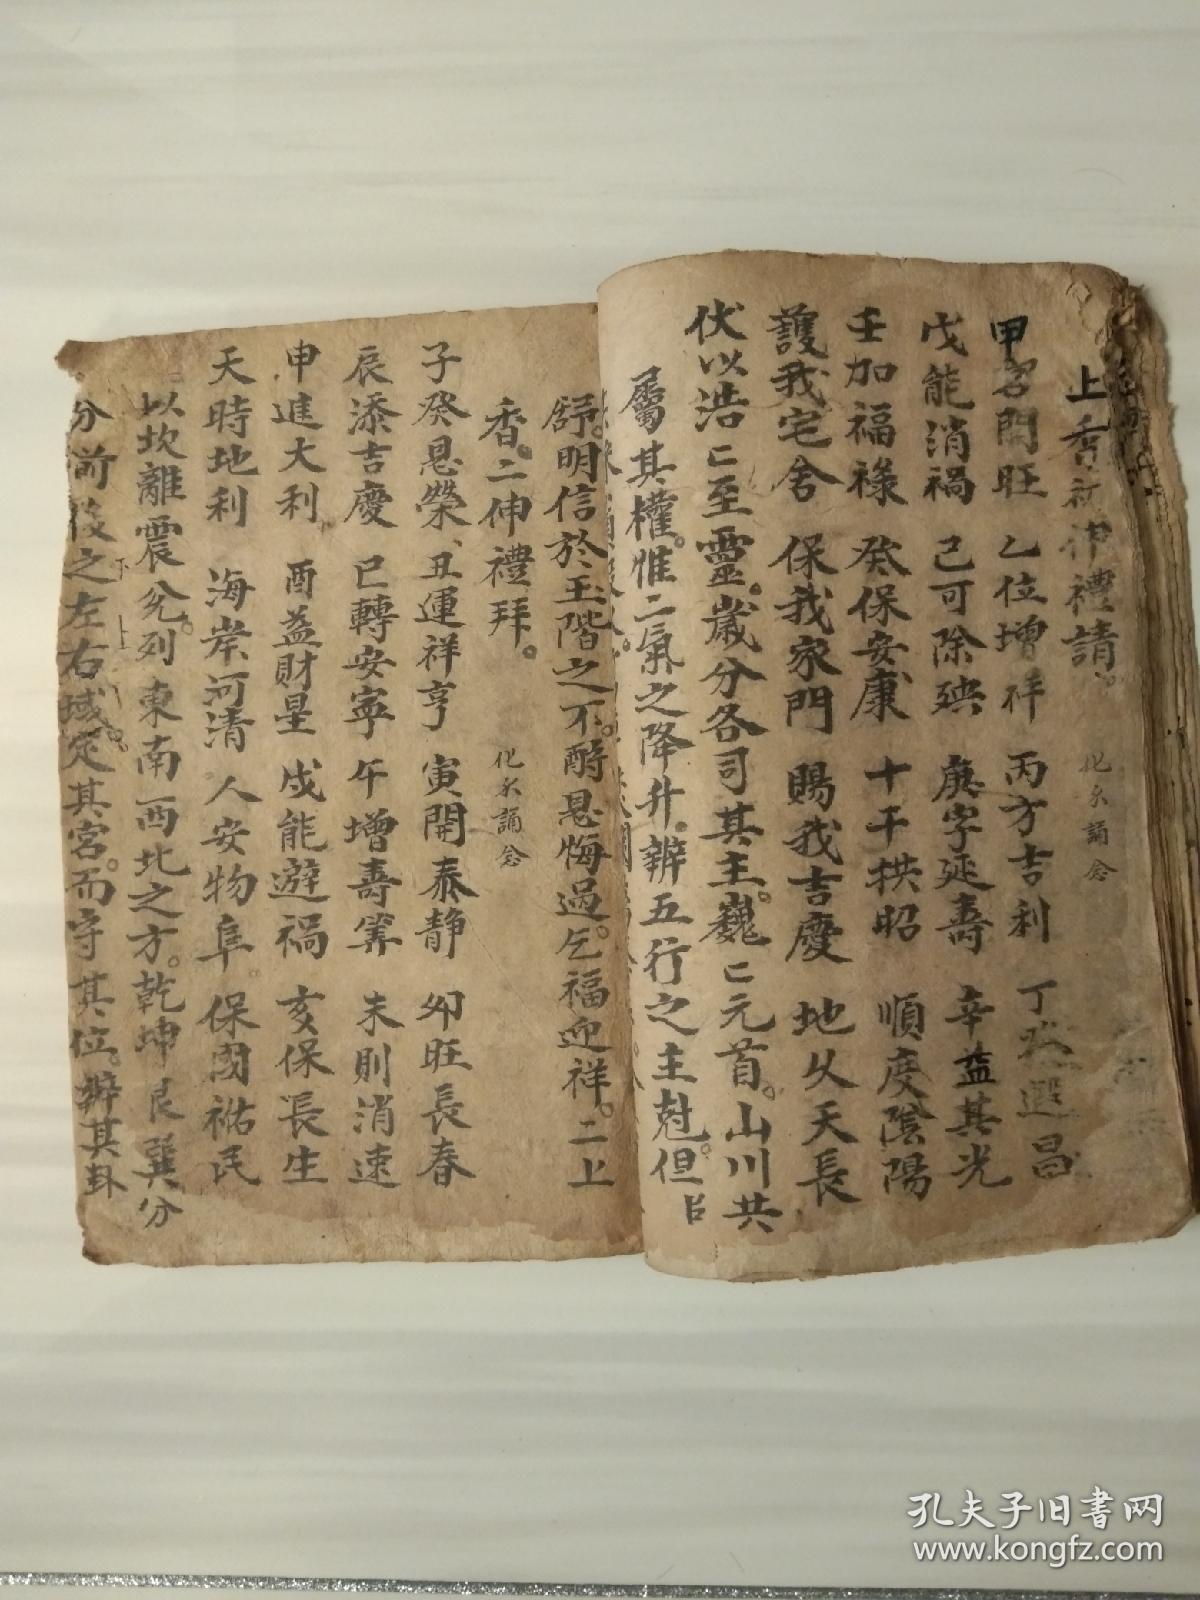 上香初伸禮請。 化氽誦念
甲寄開旺 乙位增祥 丙方吉利 丁 選昌
戊能消禍 己可除殃 庚字延壽 辛益其光
壬加福祿 癸保安康 十干拱昭 順度陰陽
護我宅舍 保我家門 賜我吉慶 地久天長
伏以浩匕至靈。歲分各司其主。巍匕元首。山川共
屬其權。惟二氣之降升。辨五行之主尅。但㠯
舒。明信於玉階之下。酧恩悔過。乞福迎祥。二上
香。二伸禮拜。 化氽誦念
子癸恩榮、丑運祥亨 寅開泰靜 卯旺長春
辰添吉慶 巳轉安寧 午增壽筭 未則消速
申進大利 酉益財星 戌能避禍 亥保長生
天時地利 海岸河清 人安物阜。保國祐民
以坎離震兊。列東南西北之方。乾坤艮巽分
分前後之左右。域定其宮。而守其位。辨其卦
孔夫子旧书网
www.kongfz.com